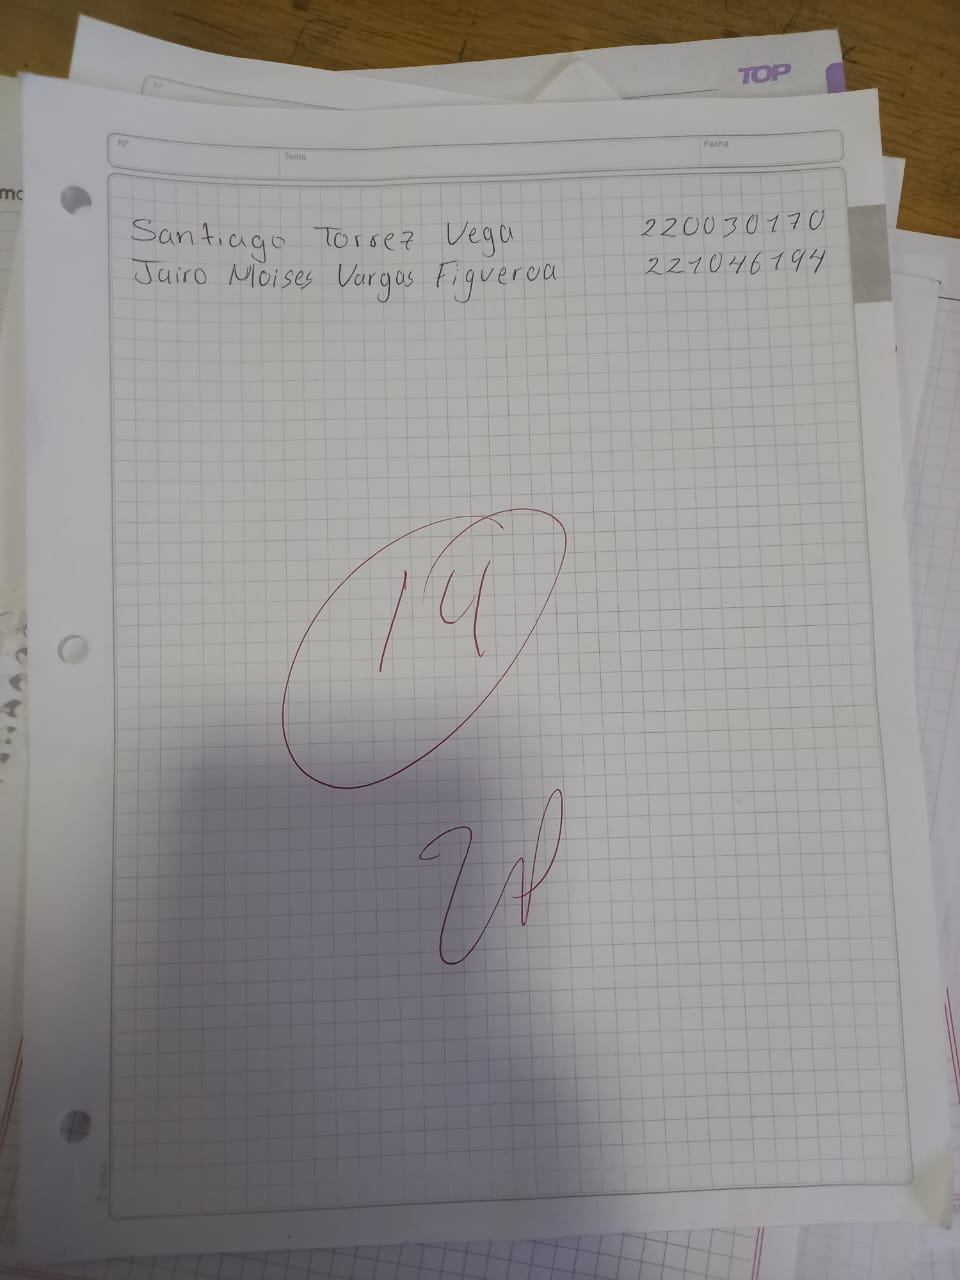 TOP
Nº
Tema
Fecha
Santiago Torrez Vega 220030170
Jairo Moises Vargas Figueroa 221046194
14